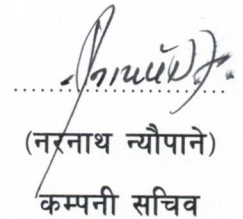 (नरनाथ न्यौपाने)
कम्पनी सचिव